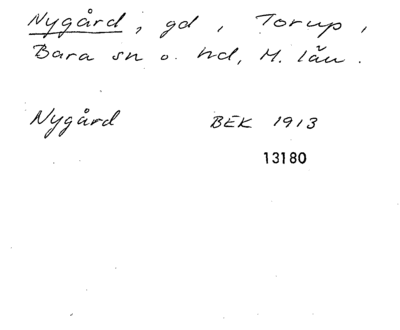 Nygård, gd, Torup,
Bara sn o. hd, M. län.
Nygård BEK 1913
13180